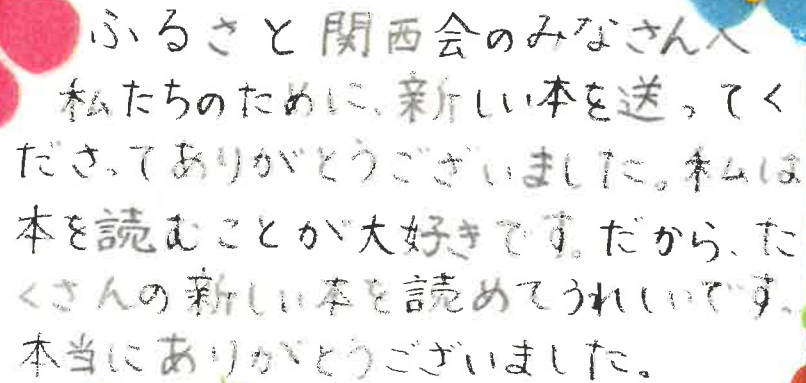 ふるさと関西会のみなさんへ
私たちのために、新しい本を送ってく
ださってありがとうございました。私は
本を読むことが大好きです。だから、た
くさんの新しい本を読めてうれしいです。
本当にありがとうございました。